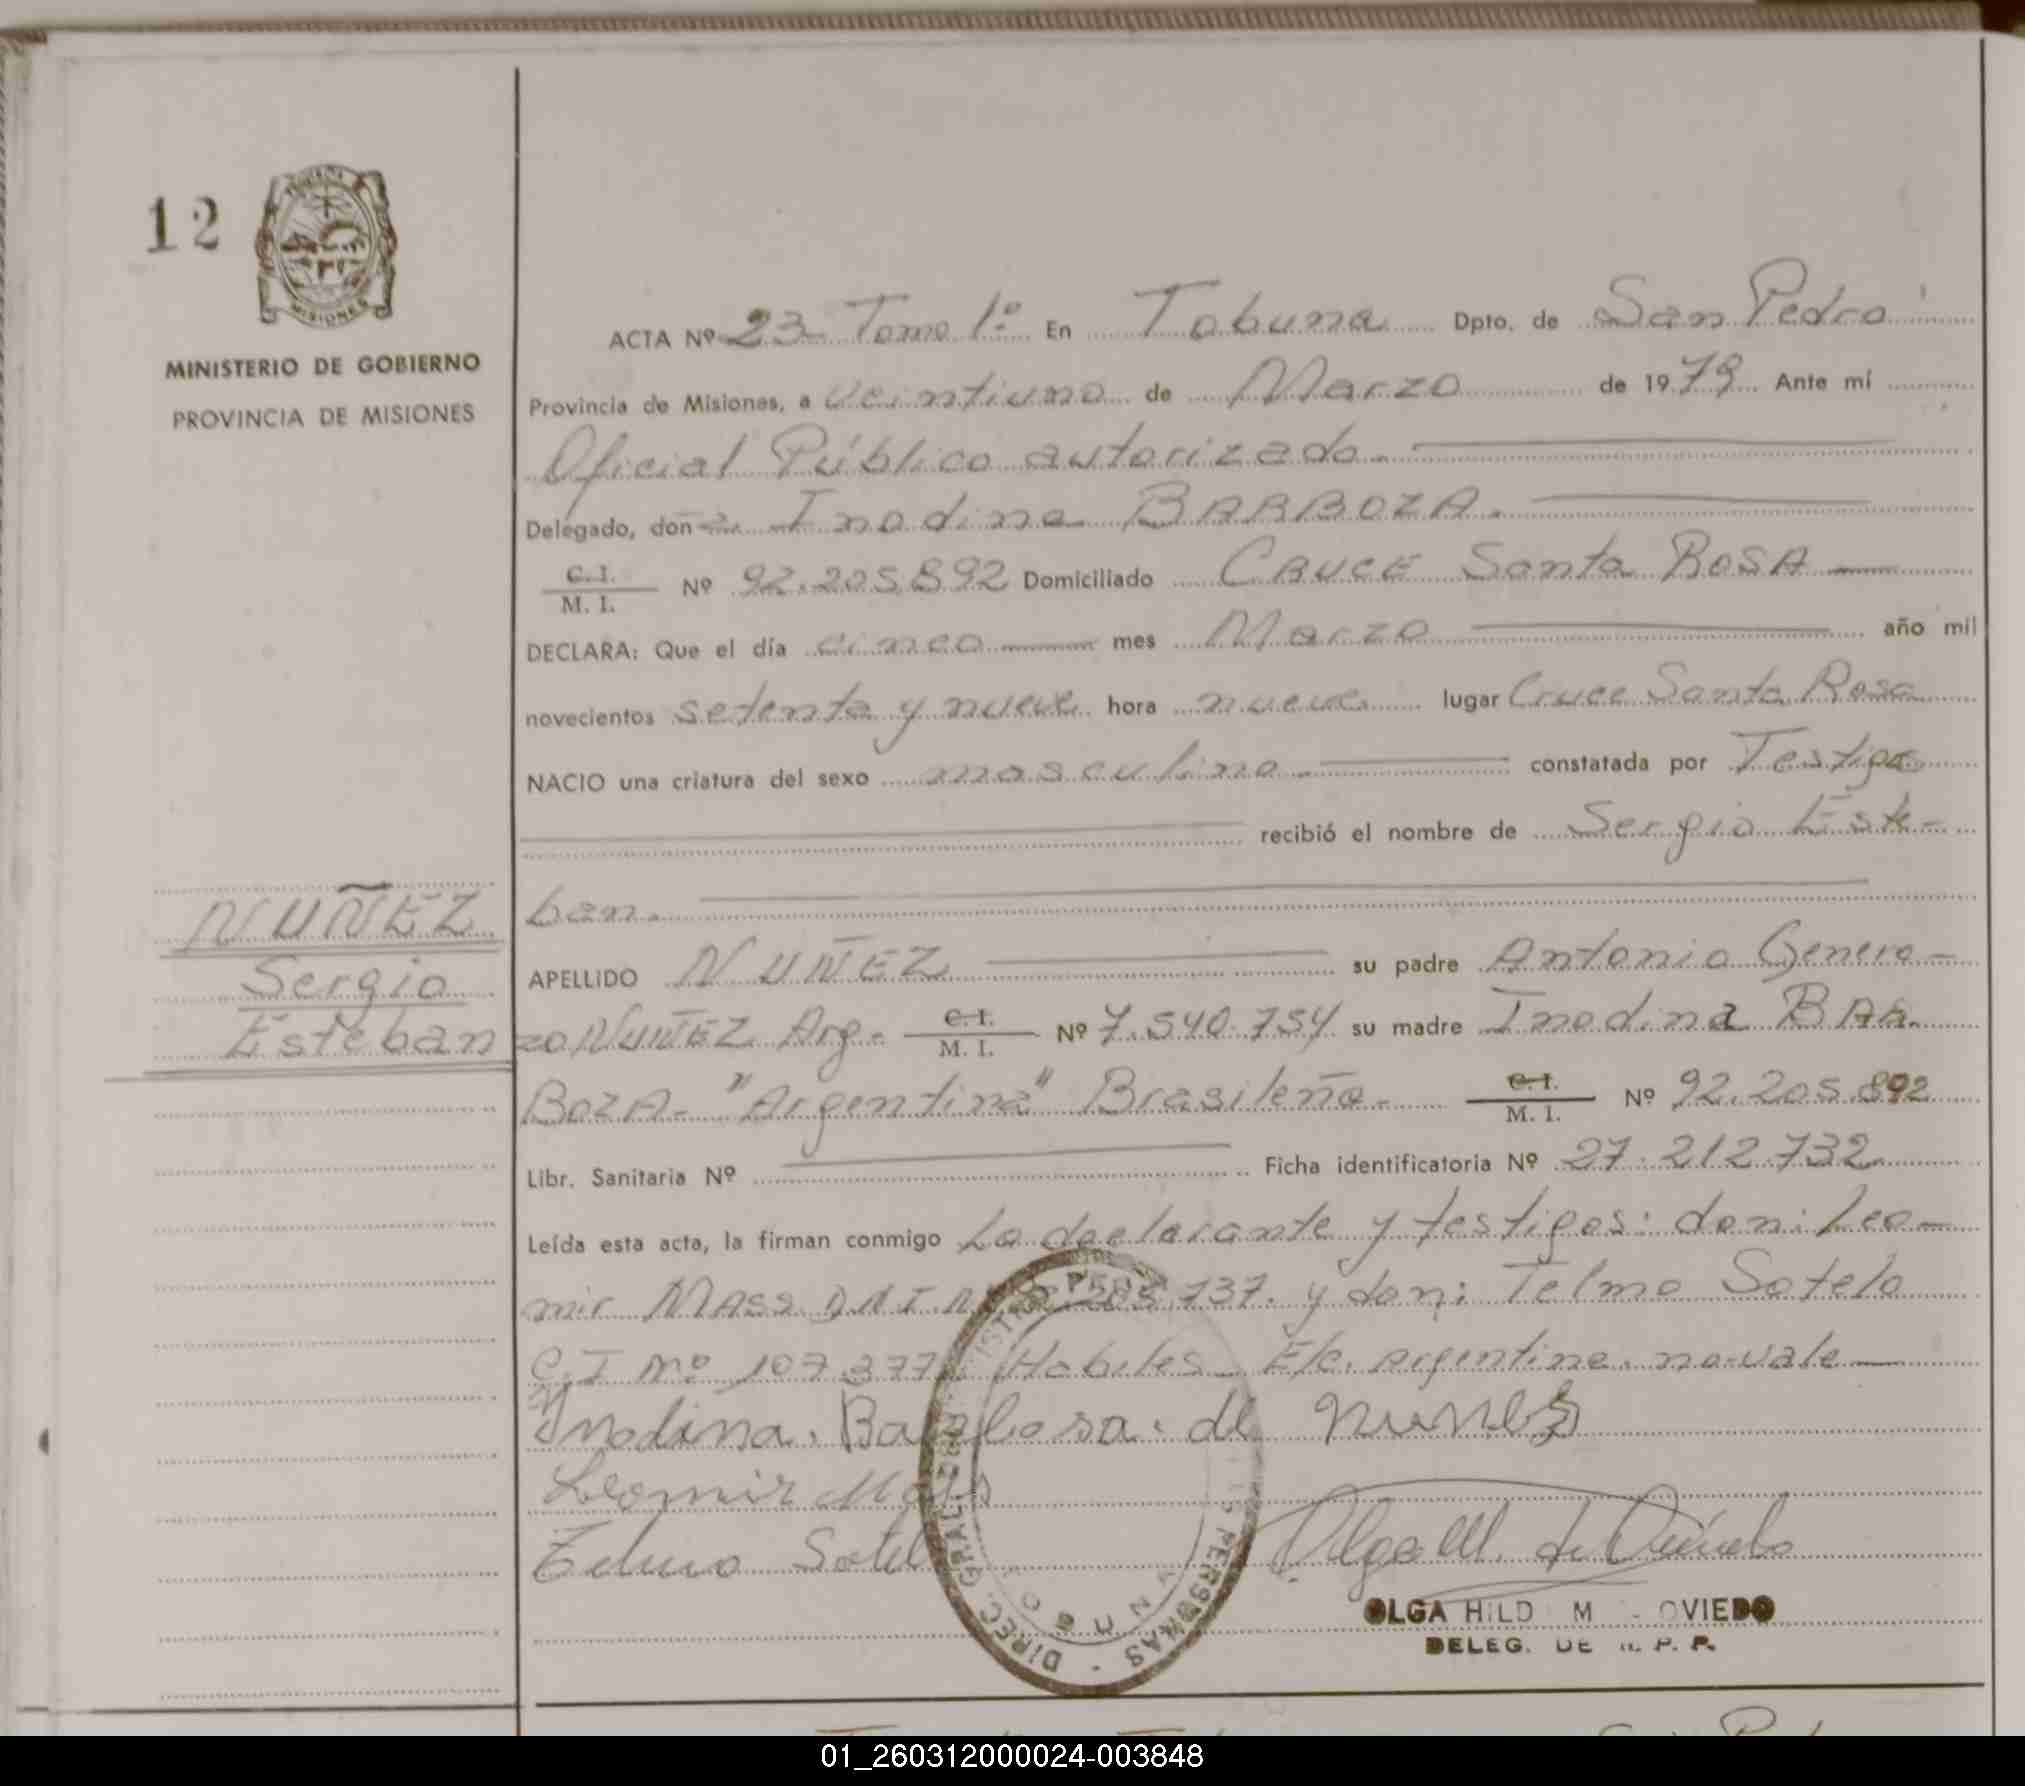 12
MISIONES
MINISTERIO DE GOBIERNO
PROVINCIA DE MISIONES
NUÑEZ
Sergio
Esteban
ACTA Nº 23 Tomo 1º En Tobuna Dpto. de San Pedro
Provincia de Misiones, a veintiuno de Marzo de 1979 Ante mí
Oficial Público autorizado.
Delegado, doña Inodina BARBOZA.
C.I.
M. I. Nº 92.205.892 Domiciliado CRUCE Santa ROSA
DECLARA: Que el día cinco mes Marzo año mil
novecientos setenta y nueve hora nueve lugar Cruce Santa Rosa
NACIO una criatura del sexo masculino constatada por Testigos
recibió el nombre de Sergio Este-
ban.
APELLIDO NUÑEZ su padre Antonio Genero-
zo NUÑEZ Arg- C.I. M. I. Nº 7.540.754 su madre Inodina BAR
BOZA- "Argentina" Brasileña- C.I. M. I. Nº 92.205.892
Libr. Sanitaria Nº Ficha identificatoria Nº 27.212.732
Leída esta acta, la firman conmigo La declarante y testigos: don: Leo-
mir MASS D.N.I. 737. y don: Telmo Sotelo
C.I Nº 107.377 Habiles- E/L. argentina. no vale
Inodina. Barbosa. de Nunes
Leomir Mass
Telmo Sotel
Olga M. de Oviedo
OLGA HILD M OVIEDO
DELEG. DE R. P. P.
DIREC. GRAL. PERSONAS
01_260312000024-003848